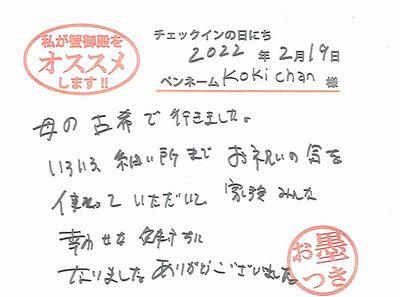 私が蟹御殿を
オススメ
します!!
チェックインの日にち
2022年2月19日
ペンネーム Kokichan 様
母の古希で行きました。
いろいろ細い所までお祝いの気を
使っていただいて 家族みんな
幸わせな気持ちに
なりました ありがとうございました
お墨つき